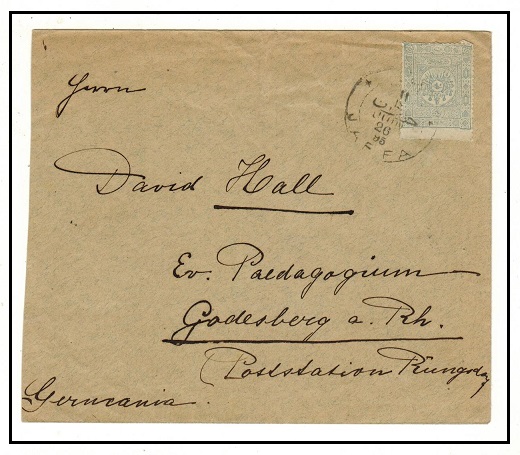 Herrn
David Hall
Ev. Paedagogium
Godesberg a. Rh.
(Poststation Rungsdorf
Germania.
JAFFA
26
95